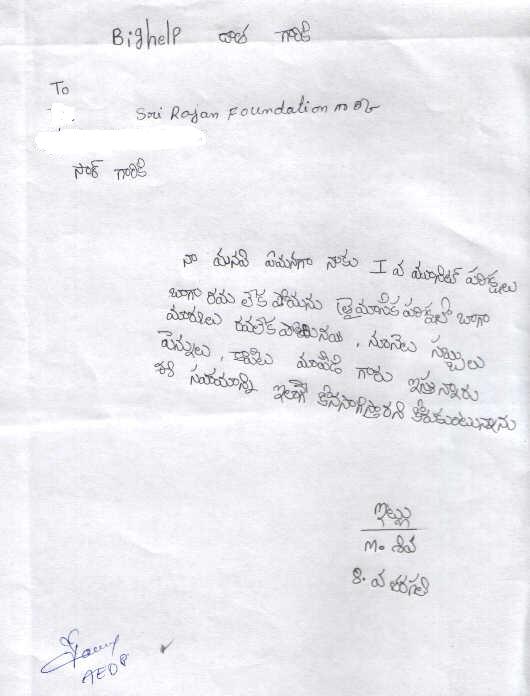 Bighelp దాత గారికి
To
Sri Rajan Foundation
సార్ గారికి
నా మనవి ఏమనగా నాకు I వ యూనిట్ పరిక్షలు
బాగా రాయ లేక పోయాను త్రైమాసిక పరిక్షలో బాగా
మార్కులు రాయలేక పోయినవి, నూనెలు సబ్బులు
పెన్నులు, గారు ఇస్తున్నారు
ఈ సహయాన్ని ఇలాగే కొనసాగిస్తారని కోరుకుంటున్నాను
ఇట్లు
M. శివ
8. వ తరగతి
AEDP